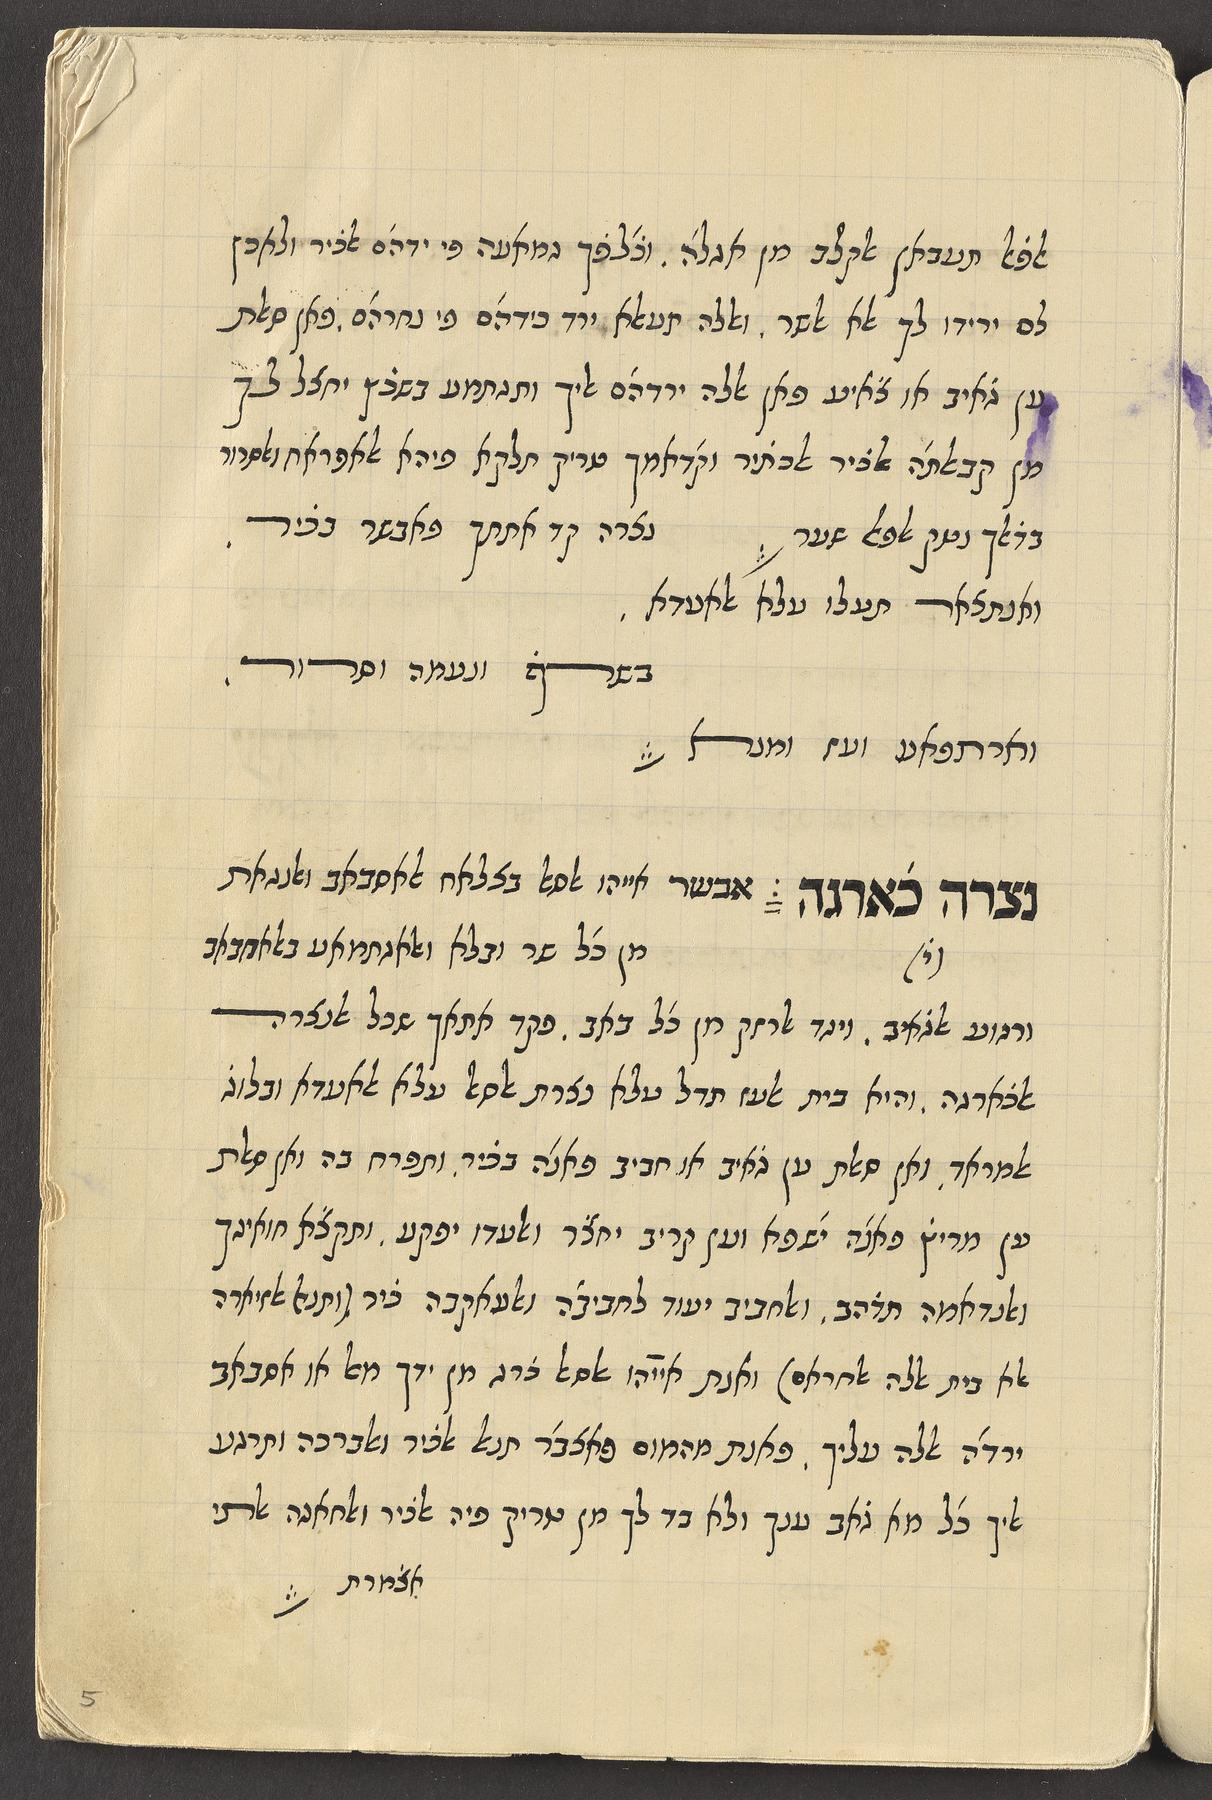 אלפאל תעבאן אלקלב מן אגלה. וכ׳לפך גמאעה פי ידהם אלכ׳יר ולאכן
לם ירידו לך אלא אלשר. ואללה תעאלא ירד כידהם פי נחרהם. פאן סאלת
ען ג׳איב או צ׳איע פאן אללה ירדהם אליך ותגתמע בשכ׳ץ יחצל לך
מן קבאלתה אלכ׳יר אלכתיר וקדאמך טריק תלקא פיהא אלאפראח ואלסרור
בד׳אלך נטק אלפאל שער נצרה קד אתתך פאבשר בכ׳יר.
ואנתצאר תעלו עלא אלאעדא.
בשרף ונעמה וסרור.
וארתפאע ועז ומנא
נצרה כ׳ארגה אבשר אייהו אלסאל בצלאח אלאסבאב ואלנגאת
(י׳) מן כל שר ובלא ואלאגתמאע באלאחבאב
ורגוע אלג׳איב. ויגד אלרזק מן כל באב. פקד אתאך שכל אלנצרה
אלכ׳ארגה. והיא בית אלעז תדל עלא נצרת אלסאל עלא אלאעדא ובלוג׳
אלמראד. ואן סאלת ען ג׳איב או חביב פאנה בכ׳יר. ותפרח בה ואן סאלת
ען מריץ׳ פאנה ישפא וען קריב יחצ׳ר ואלעדו יפקע. ותקצ׳א חואיגך
ואלנדאמה תד׳הב. ואלחביב יעוד לחביבה ואלעאקבה כ׳יר (ותנאל אלזיארה
אלא בית אללה אלחראם) ואנת אייהו אלסאל כ׳רג מן ידך מאל או אסבאב
ירדה אללה עליך. פאנת מהמום פאצבר תנאל אלכ׳יר ואלברכה ותרגע
אליך כל מא ג׳אב ענך ולא בד לך מן טריק פיה אלכ׳יר ואלחאגה אלתי
אצ׳מרת
5